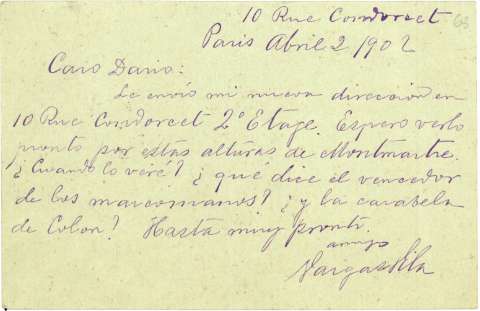 10 Rue Condorcet
63
Paris Abril 2 1902
Caro Dario:
Le envio mi nueva direccion en
10 Rue Condorcet 2º Etage. Espero verlo
pronto por estas alturas de Montmartre.
¿Cuando lo veré? ¿qué dice el vencedor
de los marcomanos? ¿y la carabela
de Colon? Hasta muy pronto.
amigo
Vargas Vila